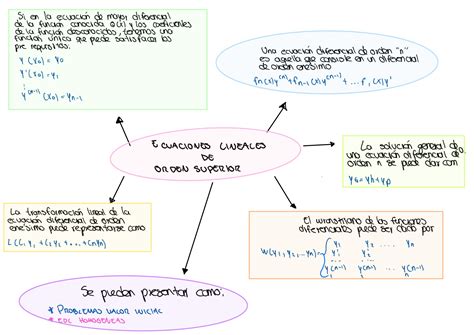 Si en la ecuación de mayor diferencial
de la función conocida g(x) y los coeficientes
de la función desconocidos, tenemos una
función única que puede satisfacer los
pre requisitos.
y(x0) = y0
y'(x0) = y1
⋮
y^(n-1)(x0) = yn-1
Una ecuación diferencial de orden "n"
es aquella que consiste en un diferencial
de orden enesimo
fn(x)y^(n) + fn-1(x)y^(n-1) + ... f1(x)y'
ECUACIONES LINEALES
DE
ORDEN SUPERIOR
La solución general de
una ecuación diferencial de
orden n se puede dar con
yG = yh + yp
La transformación lineal de la
ecuación diferencial de orden
enesimo puede representarse como
L(C1y1 + C2y2 + ... + Cnyn)
El wronskiano de las funciones
diferenciales puede ser dado por
W(y1, y2, ... yn) =
y1 y2 .... yn
y1' y2' ... yn'
y1^(n-1) y2^(n-1) yn^(n-1)
Se pueden presentar como:
* PROBLEMAS VALOR INICIAL
* EDL HOMOGENEAS